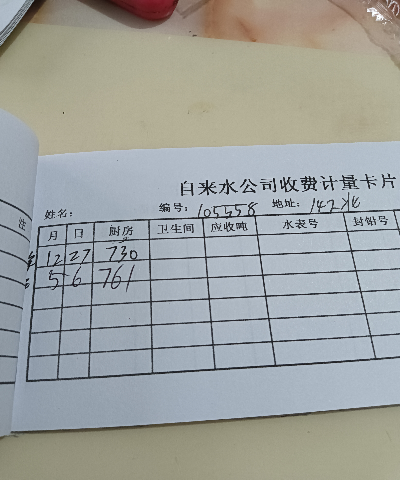 自来水公司收费计量卡片
姓名： 编号：105558 地址：
月 日 厨房 卫生间 应收吨 水表号 封铅号
12 27 730
5 6 761
注